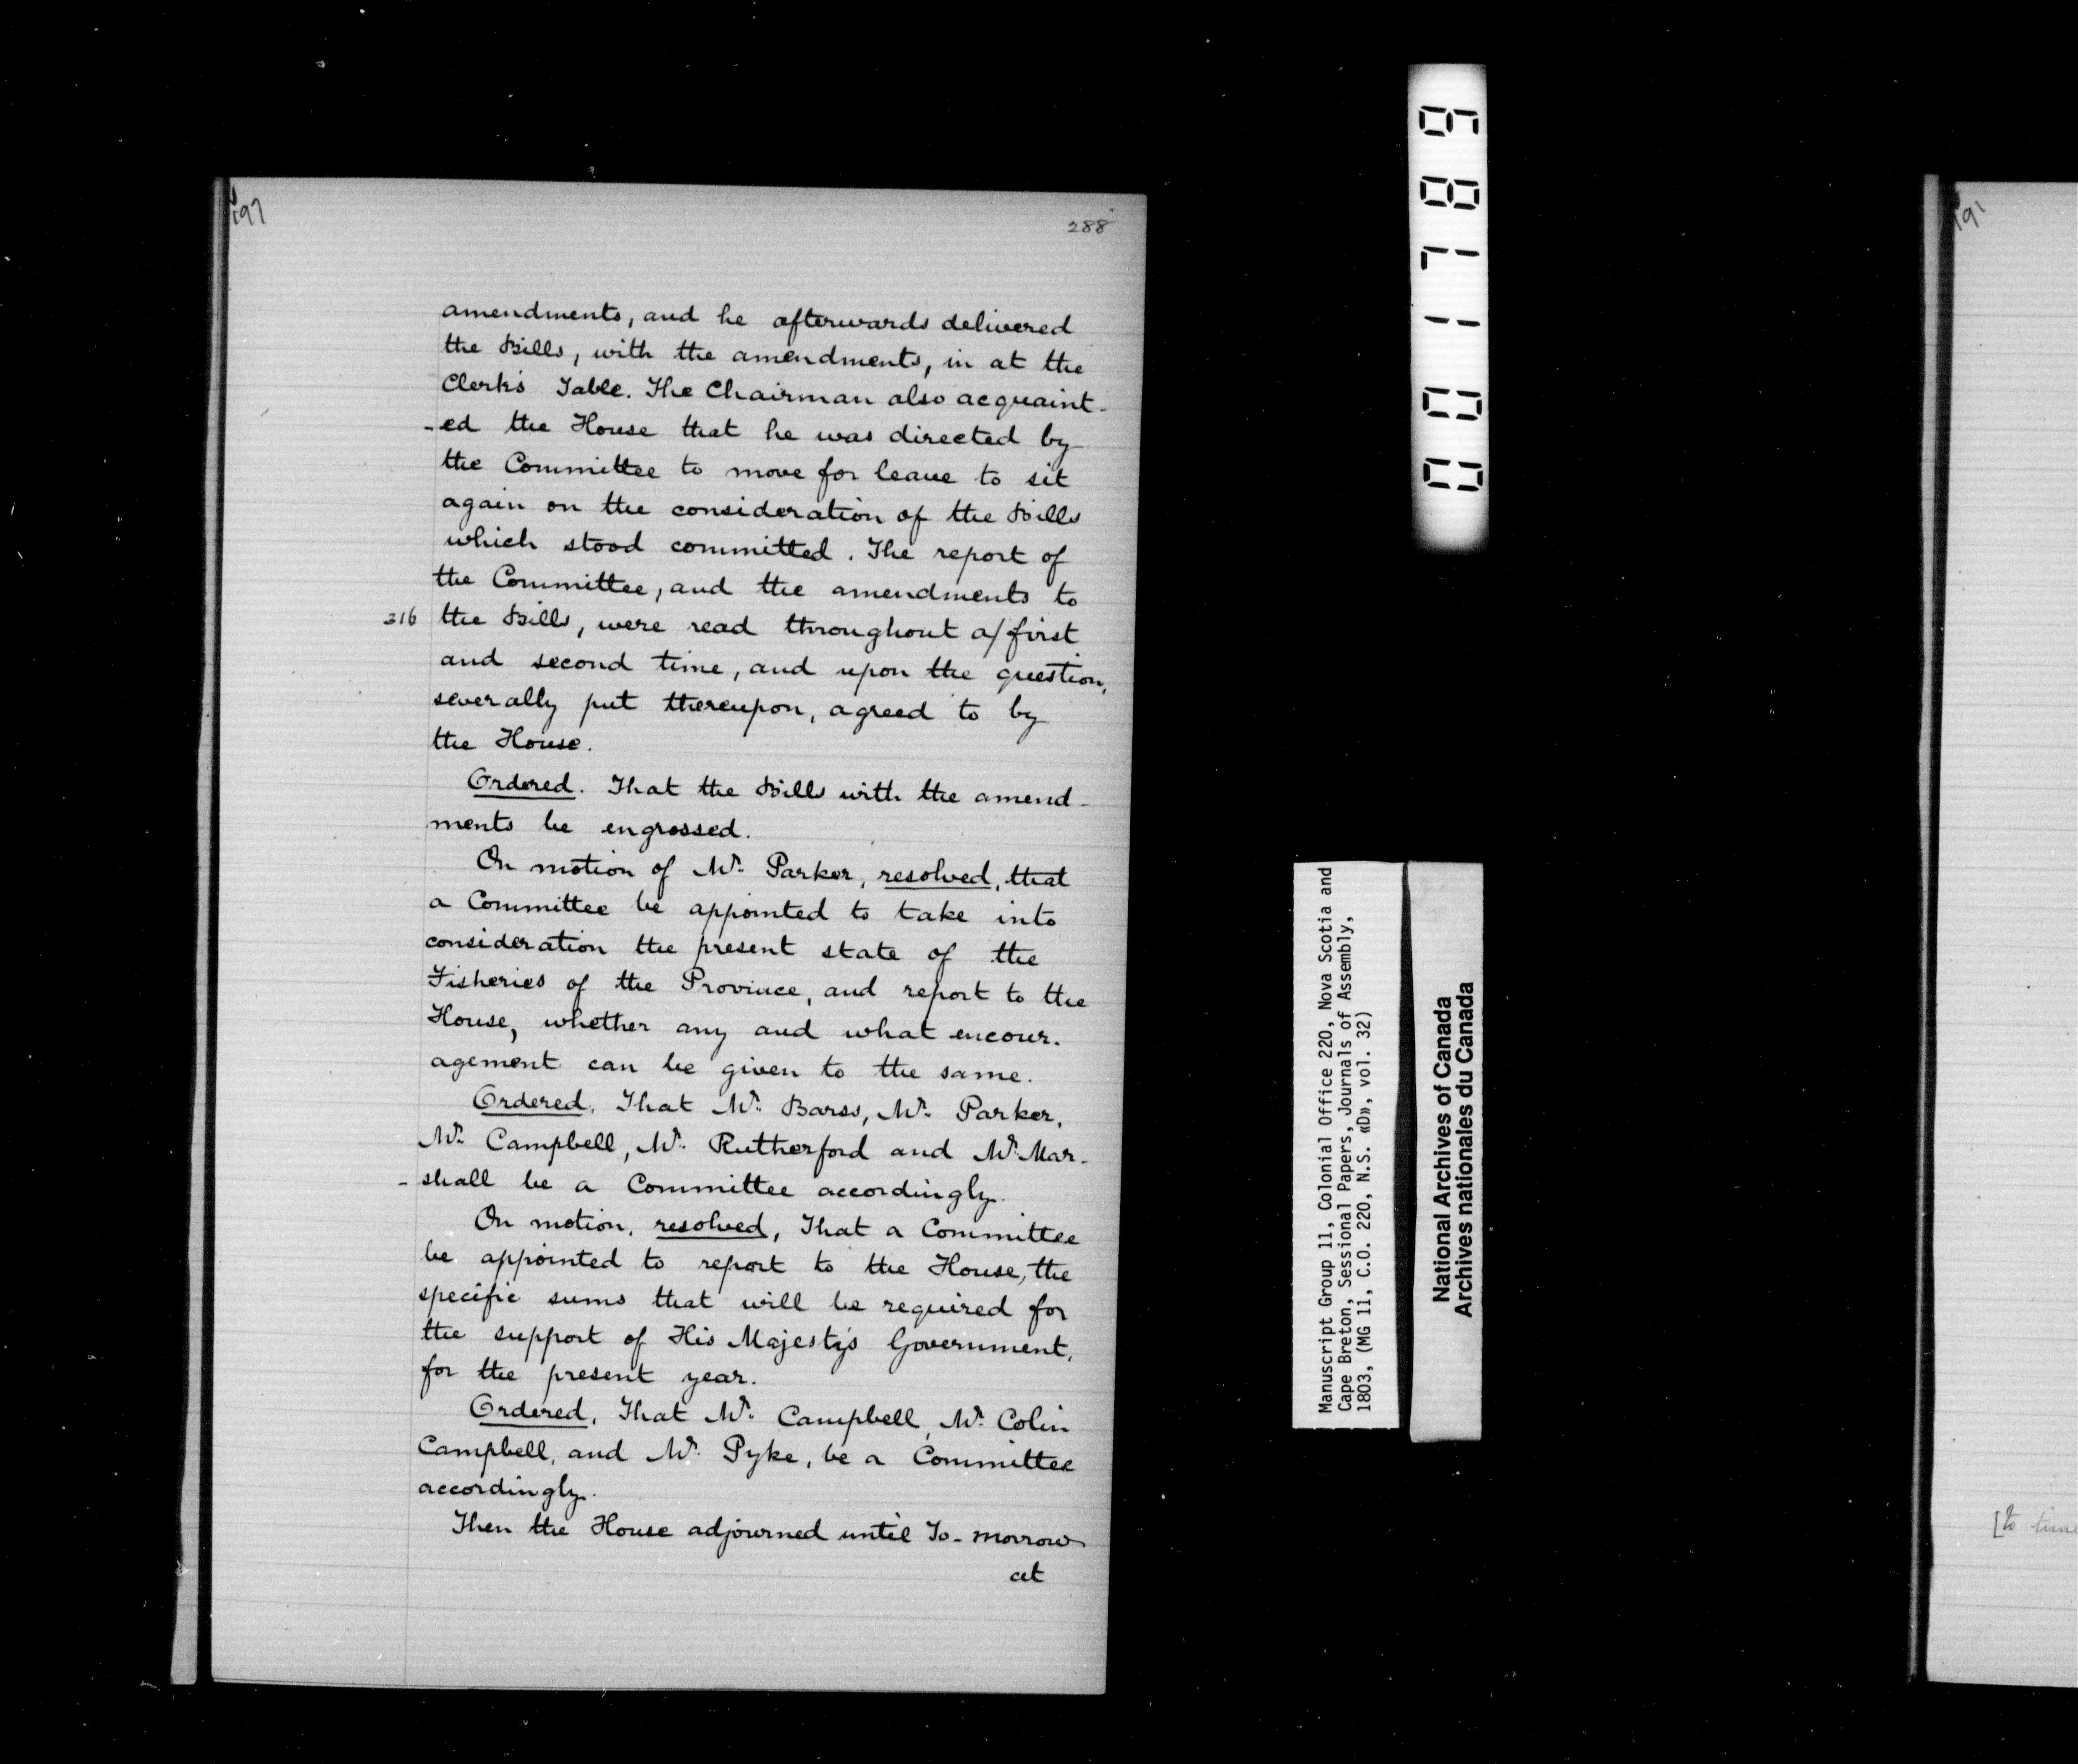 197
288
amendments, and he afterwards delivered
the Bills, with the amendments, in at the
Clerk's Table. The Chairman also acquaint-
-ed the House that he was directed by
the Committee to move for leave to sit
again on the consideration of the Bills
which stood committed. The report of
the Committee, and the amendments to
316 the Bills, were read throughout a/first
and second time, and upon the question,
severally put thereupon, agreed to by
the House.
Ordered. That the Bills with the amend-
ments be engrossed.
On motion of Mr. Parker, resolved, that
a Committee be appointed to take into
consideration the present state of the
Fisheries of the Province, and report to the
House, whether any and what encour-
agement can be given to the same.
Ordered, That Mr. Barss, Mr. Parker,
Mr. Campbell, Mr. Rutherford and Mr. Mar-
-shall be a Committee accordingly.
On motion, resolved, That a Committee
be appointed to report to the House, the
specific sums that will be required for
the support of His Majesty's Government,
for the present year.
Ordered, That Mr. Campbell, Mr. Colin
Campbell, and Mr. Pyke, be a Committee
accordingly.
Then the House adjourned until To-morrow
at
001789
Manuscript Group 11, Colonial Office 220, Nova Scotia and
Cape Breton, Sessional Papers, Journals of Assembly,
1803, (MG 11, C.O. 220, N.S. «D», vol. 32)
National Archives of Canada
Archives nationales du Canada
191
[to